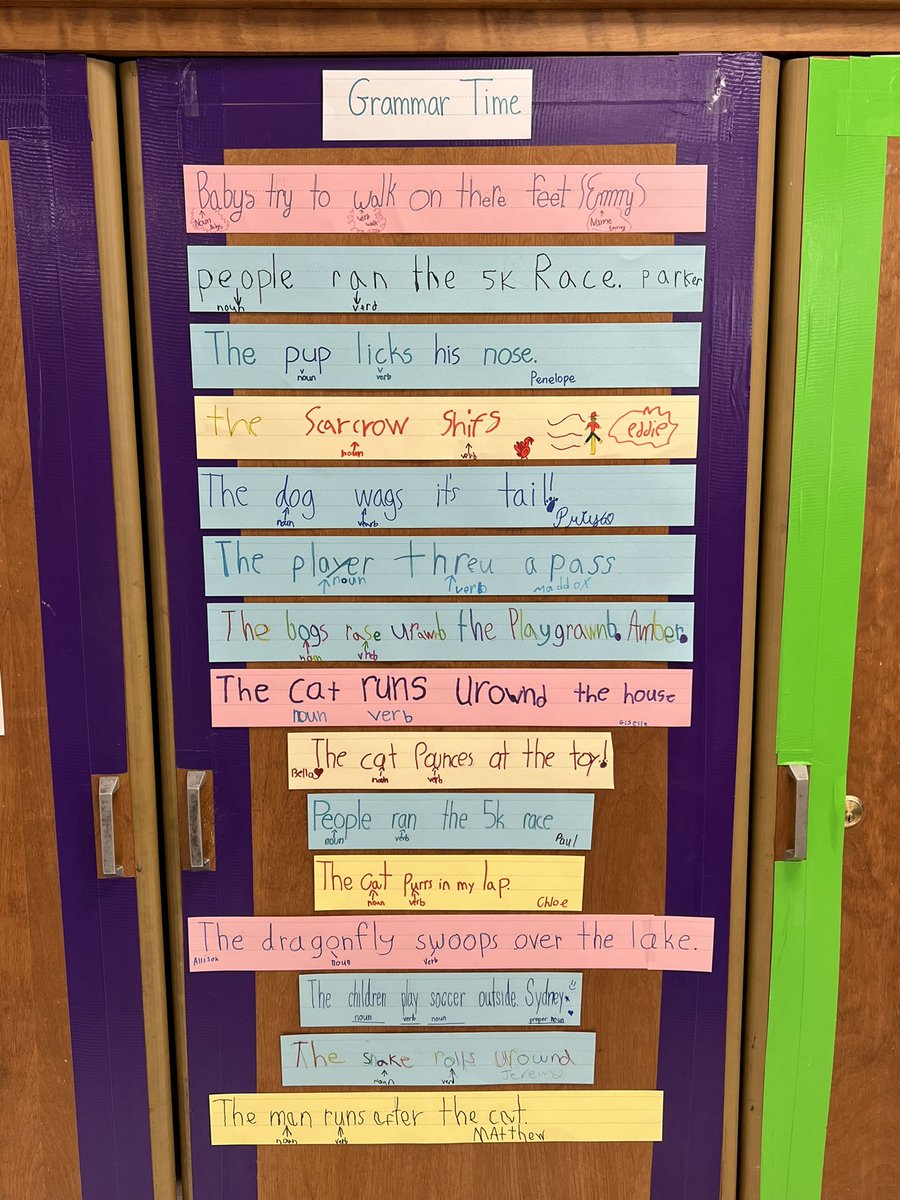 Grammar Time
Babys try to walk on there feet (Emmy)
Noun babys verb walk Name Emmy
people ran the 5K Race. Parker
noun verd
The pup licks his nose.
noun verb Penelope
the Scarcrow Shifs eddie
noun verb
The dog wags it's tail!
noun verb
The player threu a pass
noun verb maddox
The bogs rase urawnb the Playgrawnb. Amber.
noun vreb
The cat runs Uround the house
noun verb Giselle
The cat Pounces at the toy!
Bella noun verb
People ran the 5k race
noun verb Paul
The cat purrs in my lap.
noun verb Chloe
The dragonfly swoops over the lake.
Allison noun verb
The children play soccer outside. Sydney
noun verb noun proper noun
The snake rolls uround
noun verb
The man runs after the cat.
noun verb MAtthew